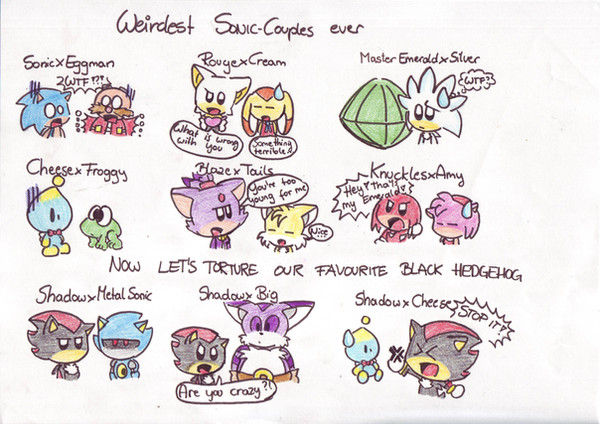 Weirdest Sonic-Couples ever
Sonic x Eggman
WTF!?!
Rouge x Cream
What is wrong
with you
Something
terrible..!
Master Emerald x Silver
WTF?
Cheese x Froggy
Blaze x Tails
You're too
young for me
Knuckles x Amy
Hey that's
my Emerald
NOW LET'S TORTURE OUR FAVOURITE BLACK HEDGEHOG
Shadow x Metal Sonic
Shadow x Big
Are you crazy?!
Shadow x Cheese
STOP IT!